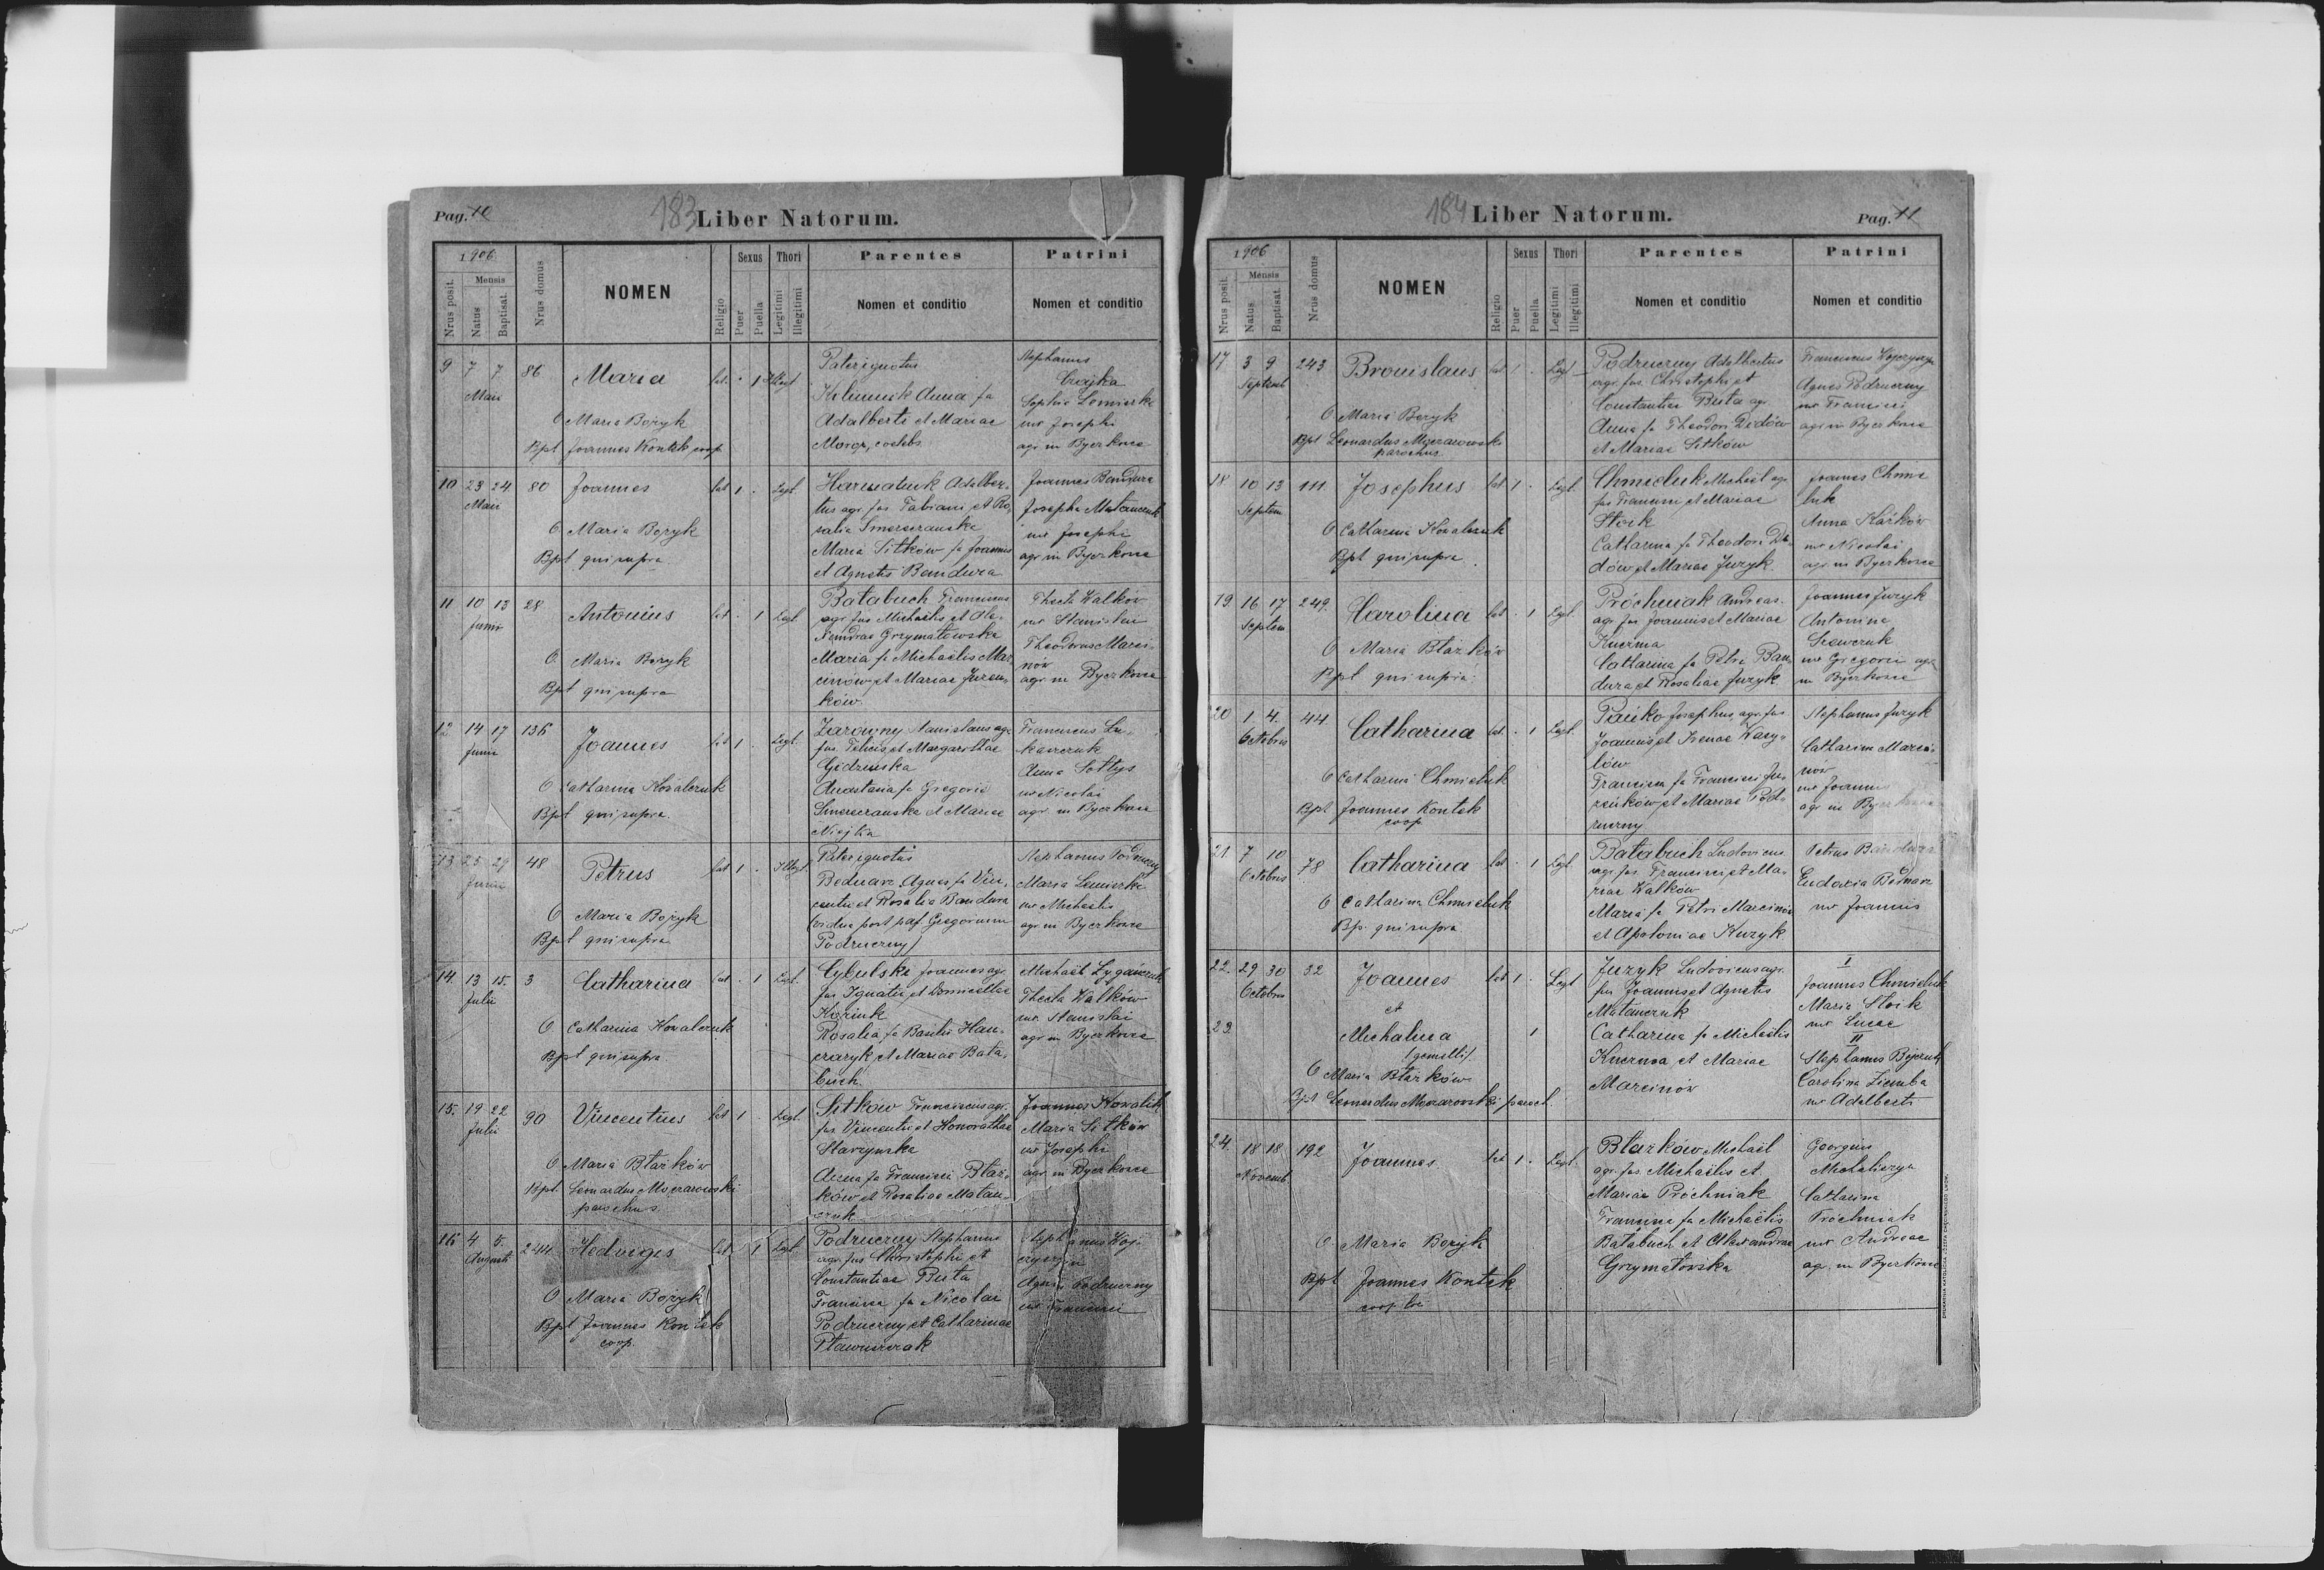 Pag. 10
183
Liber Natorum.
1906
Nrus posit.
Mensis
Natus
Baptisat.
Nrus domus
NOMEN
Religio
Sexus
Puer
Puella
Thori
Legitimi
Illegitimi
Parentes
Nomen et conditio
Patrini
Nomen et conditio
9 7 7 86 Maria 1
Maii
O Maria Bozyk
Bpt Joannes Kontek coop
Pater ignotus
Anna fa
Adalberti et Mariae
Stephanus
Czajka
Sophia
ux Josephi
agr in Byczkowce
10 23 24 80 Joannes Lat 1 Legt.
Maii
O. Maria Bozyk
Bpt qui supra
Adalber-
tus agr. fus Fabiani et Ro-
salia
Maria Sitków fa Joannis
et Agnetis Bandura
Joannes Bandura
Josepha Matanczuk
ux Josephi
agr in Byczkowce
11 10 13 28 Antonius Lat 1 Legt
Junii
O. Maria Bozyk
Bpt qui supra
Batabuch Franciscus
agr fus Michaelis et Ale-
xandrae Grzymatowska
Maria fa Michaëlis Mar-
cinów et Mariae Juzen-
ków
Thecla Walków
ux Stanislai
Theodorus Marci-
nów
agr in Byczkowce
12 14 17 136 Joannes Lat 1 Legt.
Junii
O Catharina Kowalczuk
Bpt qui supra.
Zarowny Stanislaus agr
fus Felicis et Margarethae
Anastasia fa Gregorii
et Mariae
Franciscus Lu-
Anna Sottys
ux Nicolai
agr in Byczkowce
13 25 29 48 Petrus Lat 1 Illegt.
Junii
O Maria Bozyk
Bpt qui supra
Pater ignotus
Bednarz Agnes fa Vin-
centii et Rosalia Bandura
(vidua post Gregorium
Podruczny)
Stephanus Podruczny
Maria
ux Michaelis
agr in Byczkowce
14. 13 15. 3 Catharina Lat 1 Legt.
Julii
O Catharina Kowalczuk
Bpt qui supra
Cybulski Joannes agr.
fus Ignatii et Domicellae
Rosalia fa Basilii Han-
czaryk et Mariae Bata-
buch.
Michaël Lyganczuk
Thecla Walków
ux. Stanislai
agr in Byczkowce
15. 19 22 90 Vincentius Lat 1 Legt.
Julii
O Maria Btazków
Bpt. Leonardus Moczarowski
parochus
Sitków Franciscus agr.
fus Vincentii et Honorathae
Starzynska
Anna fa Francisci Btaz-
ków et Rosaliae Matan-
czuk
Joannes Kowalik
Maria Sitków
ux Josephi
agr in Byczkowce
16 4 5. 244 Hedviges Lat 1 Legt
Augusti
O Maria Bozyk
Bpt Joannes Kontek
coop.
Podruczny Stephanus
agr. fus Christophi et
Constantiae Buta
Francisca fa Nicolai
Podruczny et Catharinae
Stephanus Woj-
czyszyn
Agnes Podruczny
ux Francisci
184
Liber Natorum.
Pag. 11
1906
Nrus posit.
Mensis
Natus
Baptisat.
Nrus domus
NOMEN
Religio
Sexus
Puer
Puella
Thori
Legitimi
Illegitimi
Parentes
Nomen et conditio
Patrini
Nomen et conditio
17 3 9 243 Bronislaus Lat 1 Legt
Septemb
O Maria Bozyk
Bpt Leonardus Moczarowski
parochus
Podruczny Adalbertus
agr. fus. Christophi et
Constantia Buta agr.
Anna fa Theodori Didów
et Mariae Sitków
Franciscus Wojczyszyn
Agnes Podruczny
ux Francisci
agr in Byczkowce
18 10 13 111 Josephus Lat 1 Legt
Septem
O Catharina Kowalczuk
Bpt qui supra
Chmieluk Michaël agr
fus Francisci et Mariae
Stoik
Catharina fa Theodori Di-
dów et Mariae Juzyk
Joannes Chmie
luk
Anna
ux Nicolai
agr in Byczkowce
19. 16 17 249. Carolina Lat 1 Legt.
Septem
O Maria Btazków
Bpt qui supra.
Próchniak Andreas.
agr fus Joannis et Mariae
Kuczma
Catharina fa Petri Ban-
dura et Rosaliae Juzyk
Joannes Juzyk
Antonina
Szewczuk
ux Gregorii agr
in Byczkowce
20 1 4. 44. Catharina Lat 1 Legt.
Octobris
O Catharina Chmieluk
Bpt Joannes Kontek
coop.
Josephus agr. fus
Joannis et Irenae Wasy-
lów
Francisca fa Francisci Ju-
zenków et Mariae Pod-
ruczny
Stephanus Juzyk
Catharina Marci-
nów
ux Joannis
agr in
21. 7 10 78 Catharina Lat 1 Legt.
Octobris
O Catharina Chmieluk
Bp. qui supra
Batabuch Ludovicus
agr. fus. Francisci et Ma-
riae Walków
Maria fa Petri Marcinów
et Apoloniae Kuzyk
Petrus Bandura
Eudoxia Bednarz
ux Joannis
22. 29 30 32 Joannes Lat 1 Legt
Octobris
et
23. Michalina 1
(gemelli)
O Maria Btazków
Bpt Leonardus Moczarowski paroch.
Juzyk Ludovicus agr.
fus Joannis et Agnetis
Matanczuk
Catharina fa Michaelis
Kuczma et Mariae
Marcinów
I
Joannes Chmieluk
Maria Stoik
ux Lucae
II
Stephanus Bojczuk
Carolina Ziemba
ux Adalberti
24. 18 18 192 Joannes Lat 1 Legt.
Novemb
O. Maria Bozyk
Bpt Joannes Kontek
coop loci
Btazków Michaël
agr. fus Michaëlis et
Mariae Próchniak
Francisca fa Michaëlis
Batabuch et Alexandrae
Grzymatowska
Georgius
Michaliczyn
Catharina
Próchniak
ux Andreae
agr. in Byczkowce